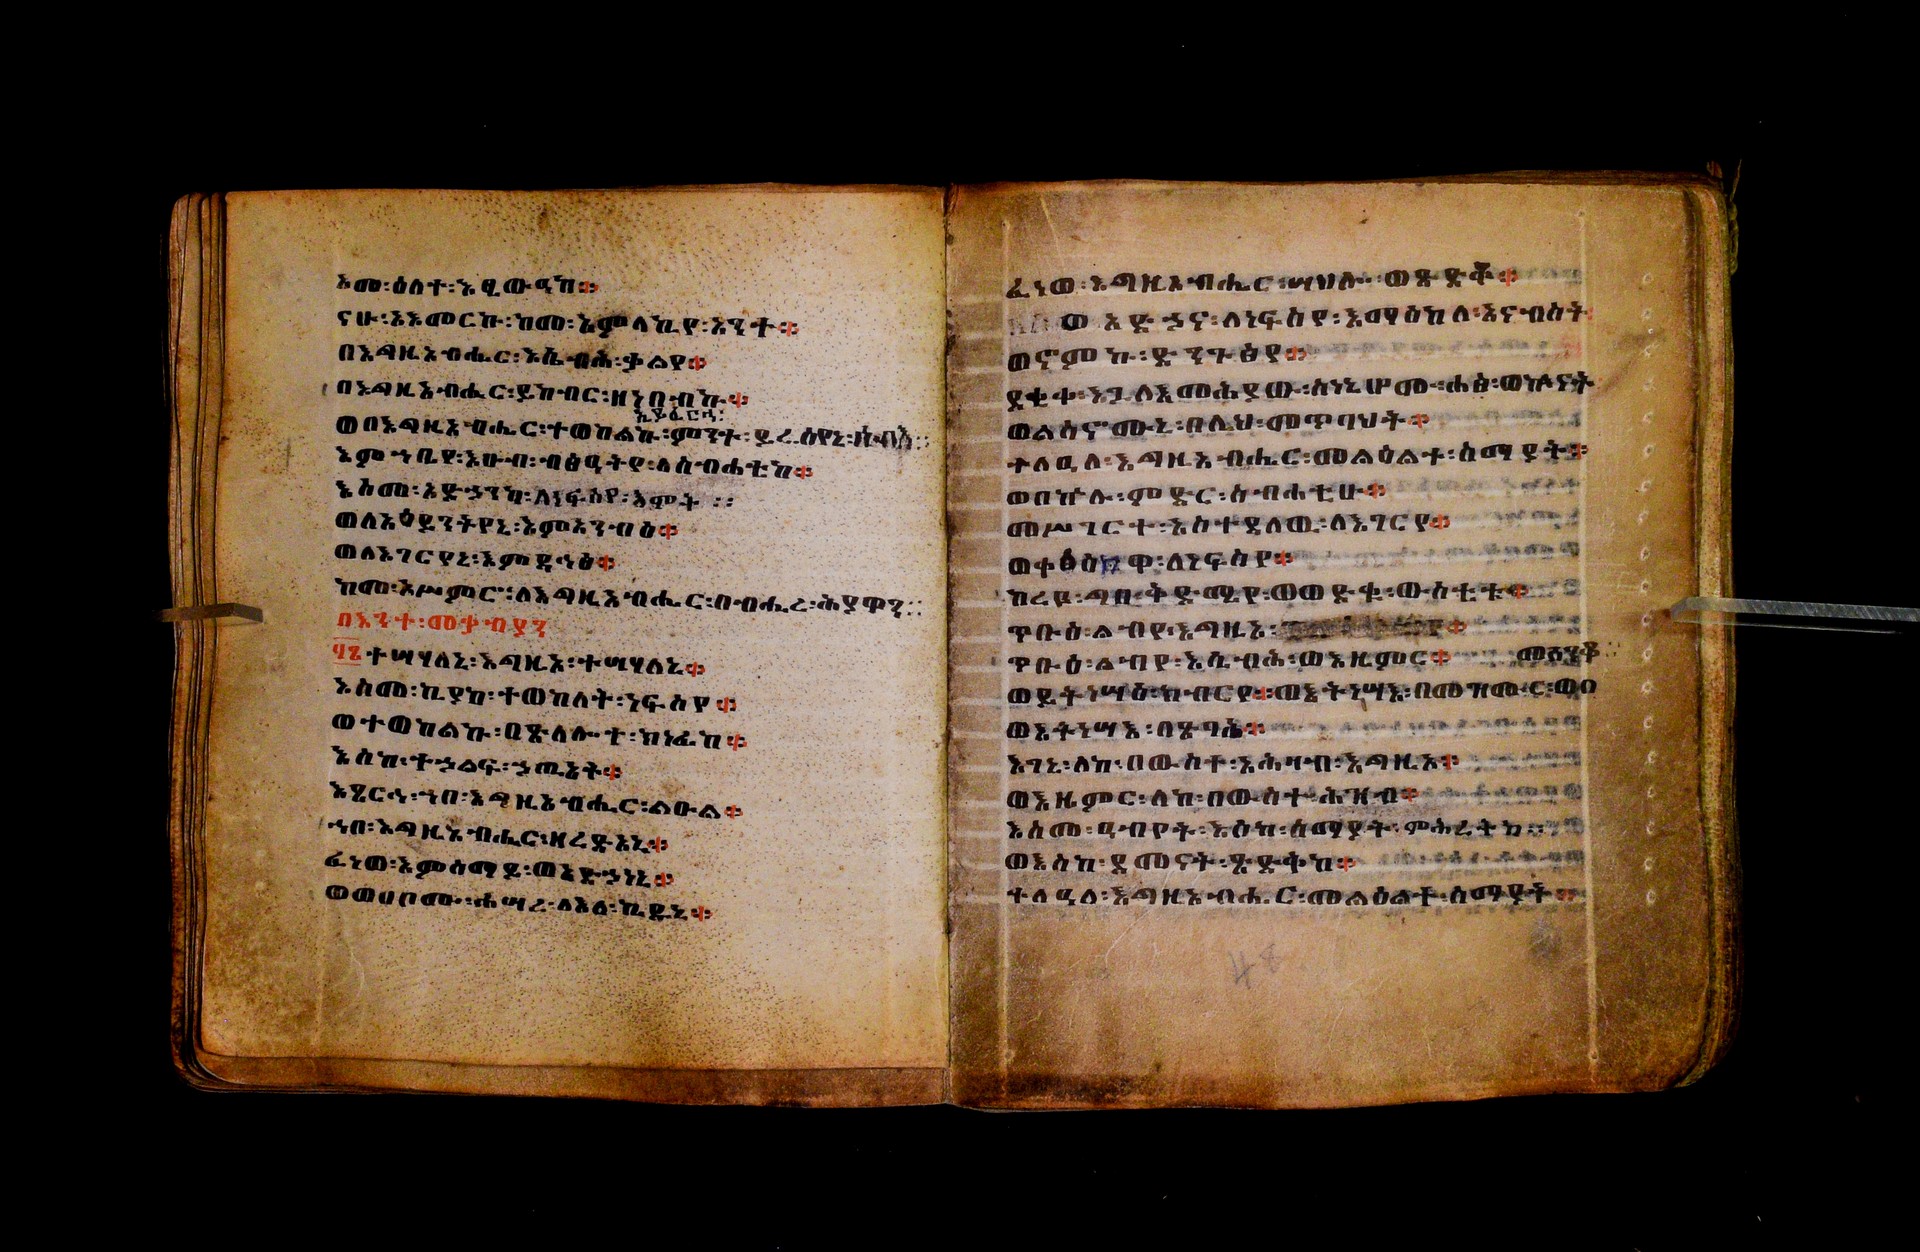 አመ፡ዕለተ፡እጼውዓከ።
ናሁ፡አእመርኩ፡ከመ፡አምላኪየ፡አንተ።
በእግዚአብሔር፡እሴብሕ፡ቃልየ።
በእግዚአብሔር፡ይከብር፡ዘነበብኩ።
ኢይፈርህ፡
ወበእግዚአብሔር፡ተወከልኩ፡ምንት፡ይሬስየኒ፡ሰብእ።
እምኀቤየ፡አሁብ፡ብፅዓትየ፡ለስብሐቲከ።
እስመ፡አድኃንካ፡ለነፍስየ፡እሞት፡፡
ወለአዕይንትየኒ፡እምአንብዕ።
ወለእገርየኒ፡እምዳኅፅ።
ከመ፡አሥምሮ፡ለእግዚአብሔር፡በብሔረ፡ሕያዋን፡፡
በእንተ፡መቃብያን
፶፮ተሣሃለኒ፡እግዚኦ፡ተሣሃለኒ።
እስመ፡ኪያከ፡ተወከለት፡ነፍስየ።
ወተወከልኩ፡በጽላሎተ፡ክነፊከ።
እስከ፡ተኃልፍ፡ኃጢአት።
እጸርኅ፡ኀበ፡እግዚአብሔር፡ልዑል።
ኀበ፡እግዚአብሔር፡ዘረድአኒ።
ፈነወ፡እምሰማይ፡ወአድኃነኒ።
ወወሀቦሙ፡ሐሣረ፡ለእለ፡ኬዱኒ።
ፈነወ፡እግዚአብሔር፡ሣህሎ፡ወጽድቆ።
ወአድኃና፡ለነፍስየ፡እማዕከለ፡አናብስት
ወኖምኩ፡ድንጉፅየ።
ደቂቀ፡እጓለእመሕያው፡ስነኒሆሙ፡ሐፅ፡ወኵናት
ወልሳኖሙኒ፡በሊህ፡መጥባህት።
ተለዓለ፡እግዚአብሔር፡መልዕልተ፡ሰማያት።
ወበኵሉ፡ምድር፡ስብሐቲሁ።
መሥገርተ፡አስተዳለዉ፡ለእገርየ።
ለነፍስየ።
ከረዩ፡ግበ፡ቅድሜየ፡ወወድቁ፡ውስቴቱ።
ጥቡዕ፡ልብየ፡እግዚኦ፡
ጥቡዕ፡ልብየ፡እሴብሕ፡ወእዜምር።
ወይትነሣዕ፡ክብርየ።ወእትነሣእ፡በመዝሙር፡ወበ
ወእትነሣእ፡በጽባሕ።
እገኒ፡ለከ፡በውስተ፡አሕዛብ፡እግዚኦ።
ወእዜምር፡ለከ፡በውስተ፡ሕዝብ።
እስመ፡ዓብየት፡እስከ፡ሰማያት፡ምሕረትከ፡፡
ወእስከ፡ደመናት፡ጽድቅከ።
ተለዓለ፡እግዚአብሔር፡መልዕልተ፡ሰማያት።
48